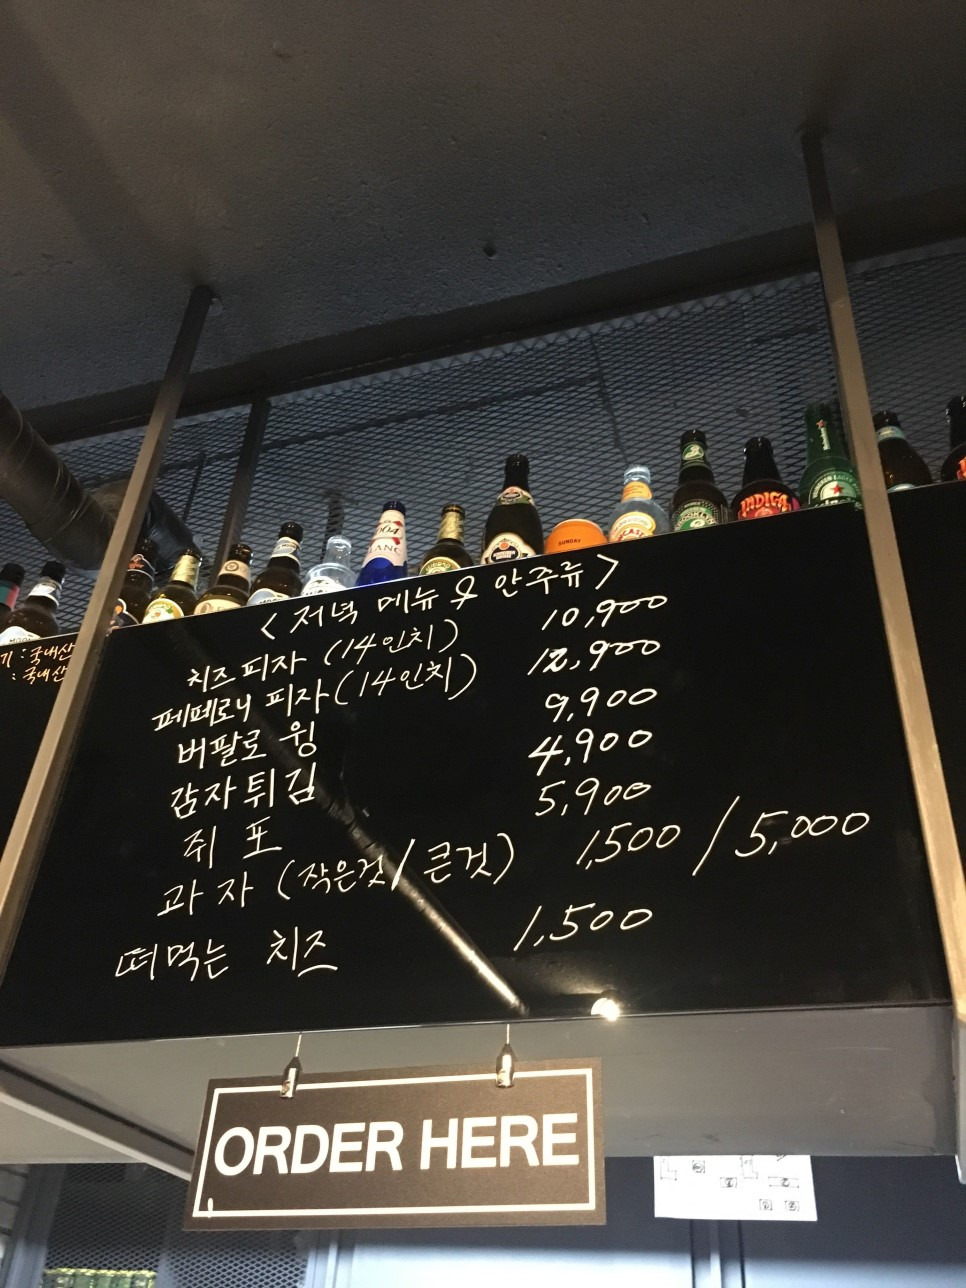 <저녁 메뉴 & 안주류>
치즈피자 (14인치) 10,900
페페로니 피자 (14인치) 12,900
버팔로 윙 9,900
감자튀김 4,900
쥐포 5,900
과자 (작은것/큰것) 1,500 / 5,000
떠먹는 치즈 1,500
기 : 국내산
: 국내산
BLANC
SUNDAY
BROOKLYN
INDICA
Heineken
ORDER HERE